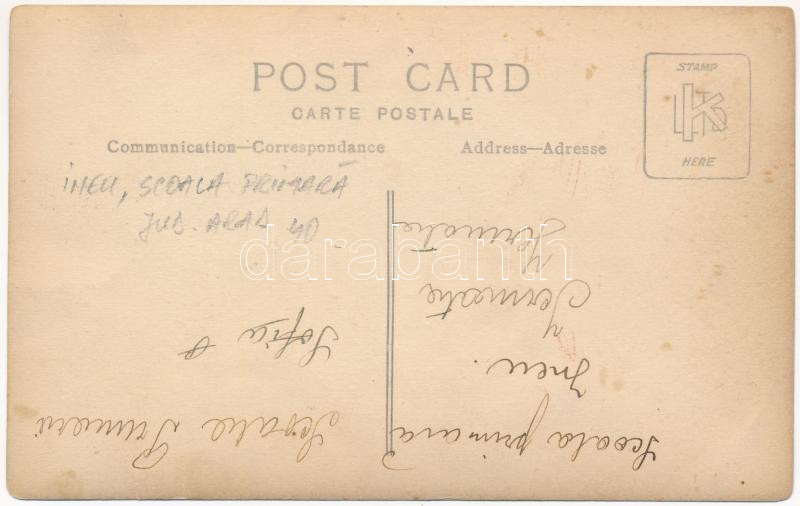 POST CARD
CARTE POSTALE
Communication—Correspondance
Address—Adresse
STAMP
HERE
INEU, SCOALA PRIMARĂ
JUD. ARAD 40-
darabanth
Scoala primara
Ineu.
Sofia
Scoale